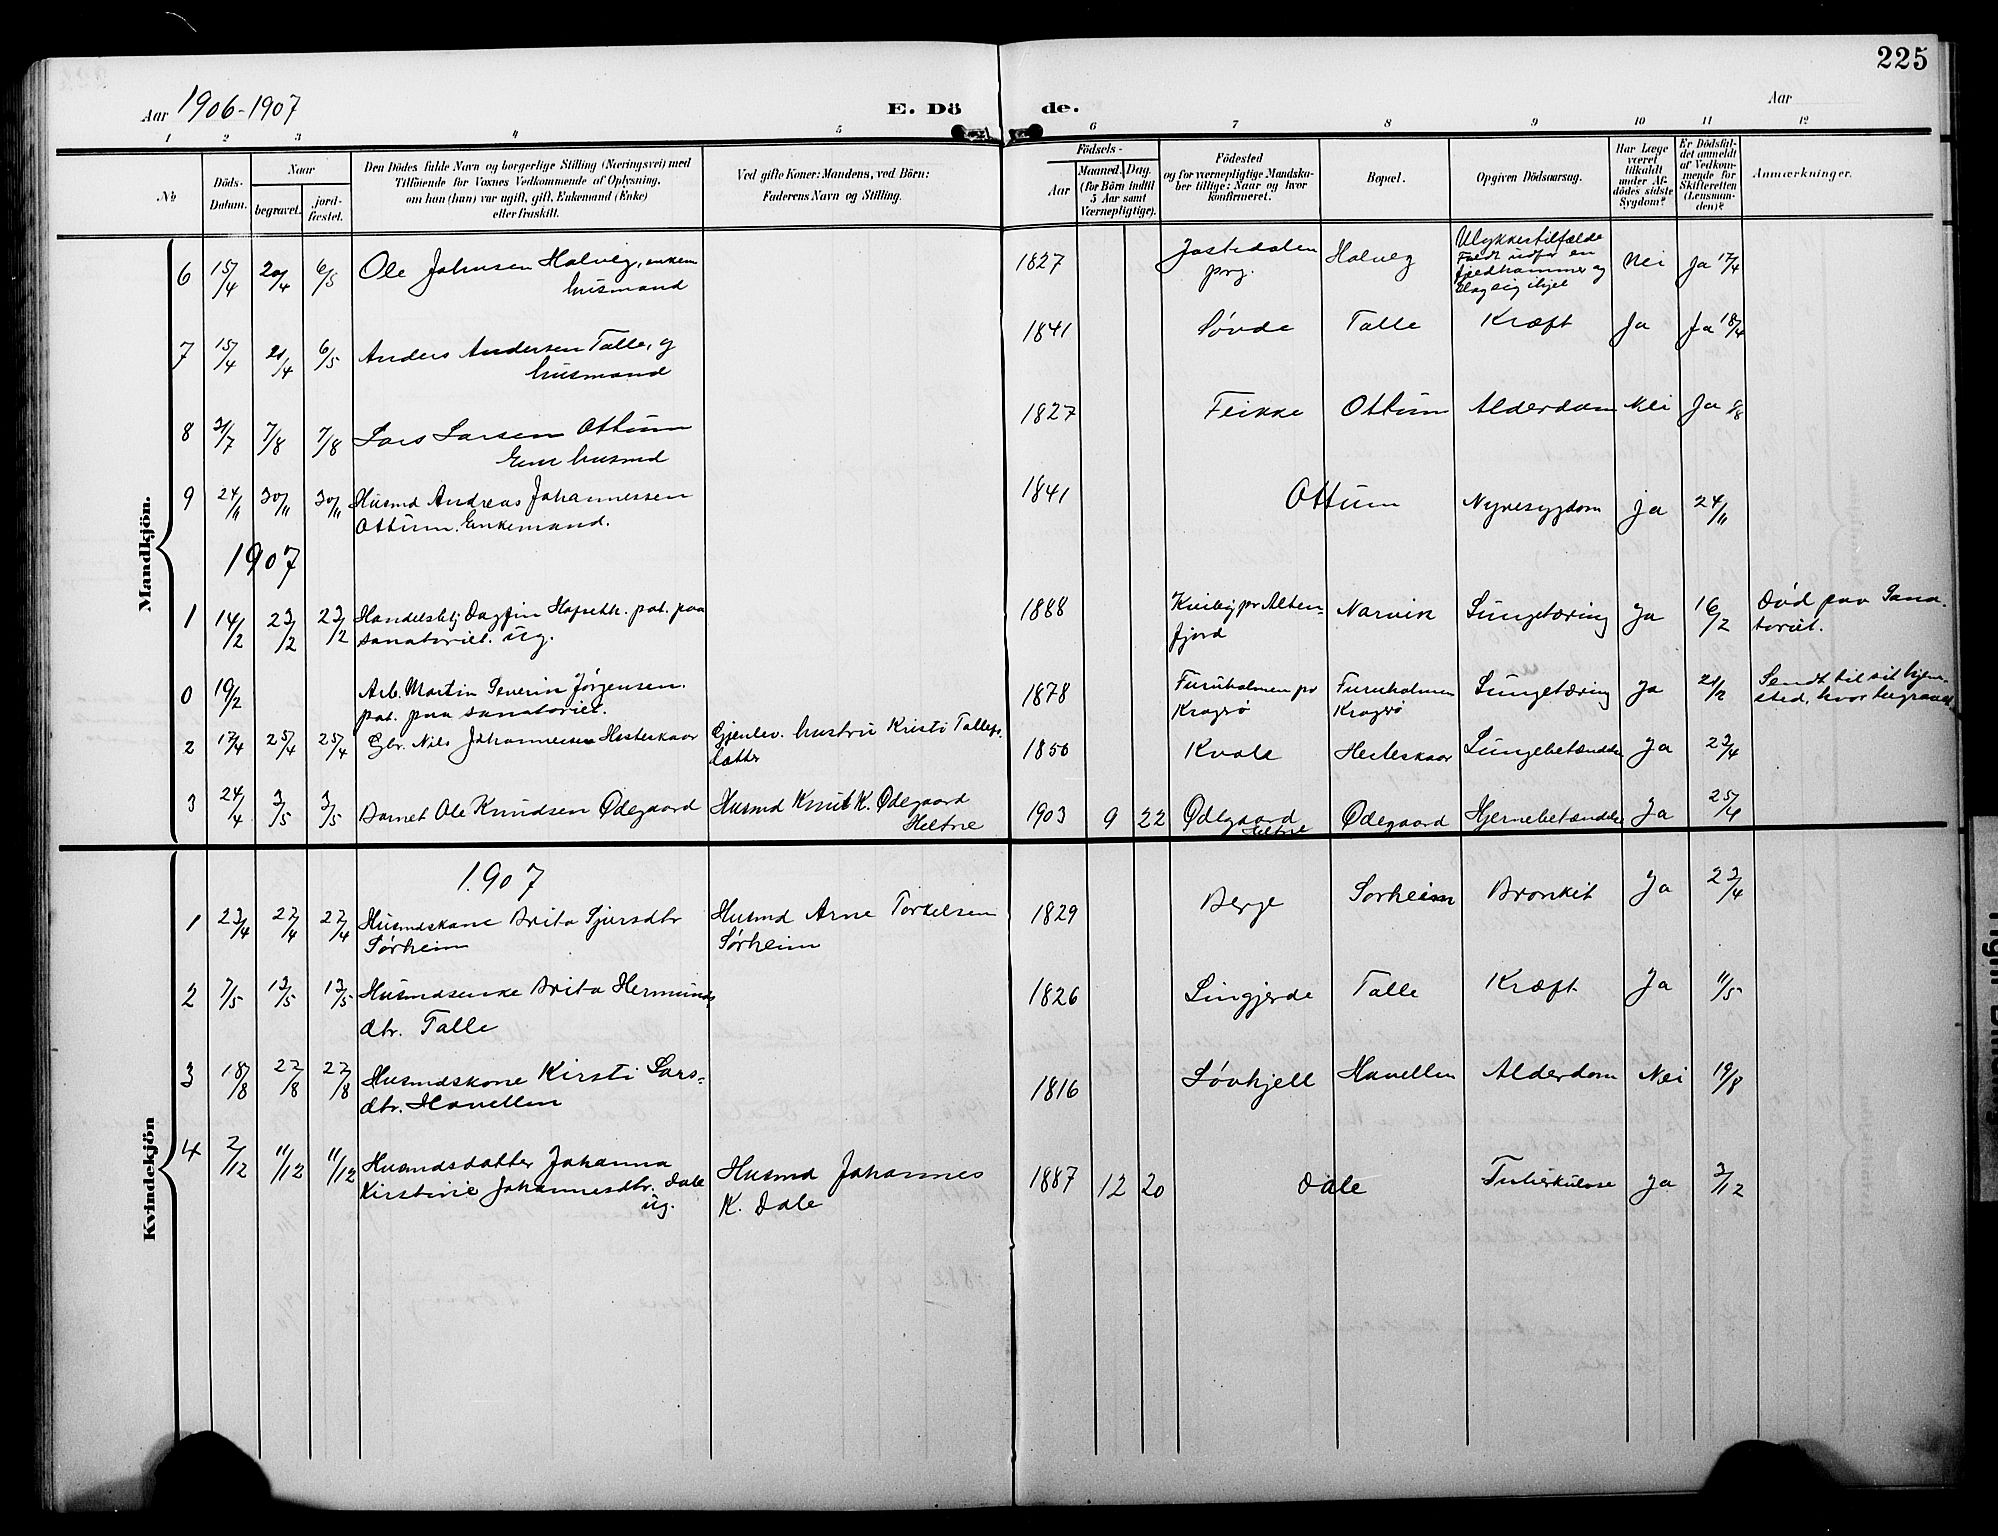 225
Aar 1906-1907
E. Dö de.
Aar
1 2 3 4 5 6 7 8 9 10 11 12
No
Döds-
Datum.
Naar
begravet.
jord-
fæstet.
Den Dödes fulde Navn og borgerlige Stilling (Næringsvei) med
Tilföiende for Voxnes Vedkommende af Oplysning,
om han (hun) var ugift, gift, Enkemand (Enke)
eller fraskilt.
Ved gifte Koner: Mandens, ved Börn:
Faderens Navn og Stilling.
Födsels-
Aar
Maaned. Dag.
(for Börn indtil
5 Aar samt
Værnepligtige).
Födested
og for værnepligtige Mandska-
ber tillige: Naar og hvor
konfirmeret.
Bopæl.
Opgiven Dödsaarsag.
Har Læge
været
tilkaldt
under Af-
dödes sidste
Sygdom?
Er Dödsfal-
det anmeldt
af Vedkom-
mende for
Skifteretten
(Lensman-
den)?
Anmærkninger.
Mandkjön.
6 15/4 20/4 6/5 Ole Johnsen Halveg, enkem 1827 Jostedalen Halveg Ulykkestilfælde Nei Ja 17/4
husmand prg. Faldt udfor en
fjeldhammer og
slog sig ihjel
7 15/4 21/4 6/5 Anders Andersen Talle, g 1841 Søvde Talle Kræft Ja Ja 18/4
husmand
8 31/7 7/8 7/8 Lars Larsen Ottum 1827 Feikke Ottum Alderdom Nei Ja 8/8
Enm husmd
9 24/11 30/11 30/11 Husmd Andreas Johannessen 1841 Ottum Nyresygdom Ja 24/11
Ottum. Enkemand.
1907
1 14/2 23/2 23/2 Handelsbtj Dagfin pat. paa 1888 pr Alten- Narvik Lungetæring Ja 16/2 Død paa Sana-
sanatoriet. ug. fjord toriet.
0 19/2 Arb. Martin Severin Jørgensen. 1878 Furuholmen pr Furuholmen Lungetæring Ja 21/2 Sendt til sit hjem-
pat. paa sanatoriet. Kragerø Kragerø sted, hvor begravet.
2 17/4 25/4 25/4 Gbr. Nils Johannessen Hesteskaar Gjenlev. hustru Kristi Tallefs- 1850 Kvale Hesteskaar Lungebetændelse Ja 23/4
datter
3 24/4 3/5 3/5 Barnet Ole Knudsen Ødegaard Husmd Knut K. Ødegaard 1903 9 22 Ødegaard Ødegaard Hjernebetændelse Ja 25/4
Heltne Heltne
Kvindekjön
1907
1 23/4 27/4 27/4 Husmdskone Brita Sjursdtr Husmd Arne Torkelsen 1829 Berge Sørheim Bronkit Ja 23/4
Sørheim Sørheim
2 7/5 13/5 13/5 Husmdsenke Brita Hermunds 1826 Lingjerde Talle Kræft Ja 11/5
dtr. Talle
3 18/8 22/8 22/8 Husmdskone Kirsti Lars- 1816 Løvhjell Havellen Alderdom Nei 19/8
dtr. Havellen
4 2/12 11/12 11/12 Husmdsdatter Johanna Husmd Johannes 1887 12 20 Dale Tuberkulose Ja 3/12
Kirstine Johannesdtr. Dale K. Dale
ug.